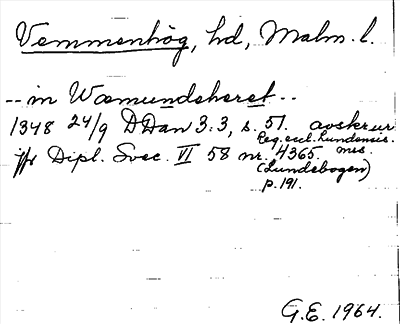 Vemmenhög, hd, Malm. l.
-- in Wæmundsheret --
1348 24/9 DDan 3.3, s. 51. avskr ur
Reg. eccl. Lundensis.
jfr Dipl. Svec. VI 58 nr. 4365. ms.
(Lundebogen)
p. 191.
G.E. 1964.